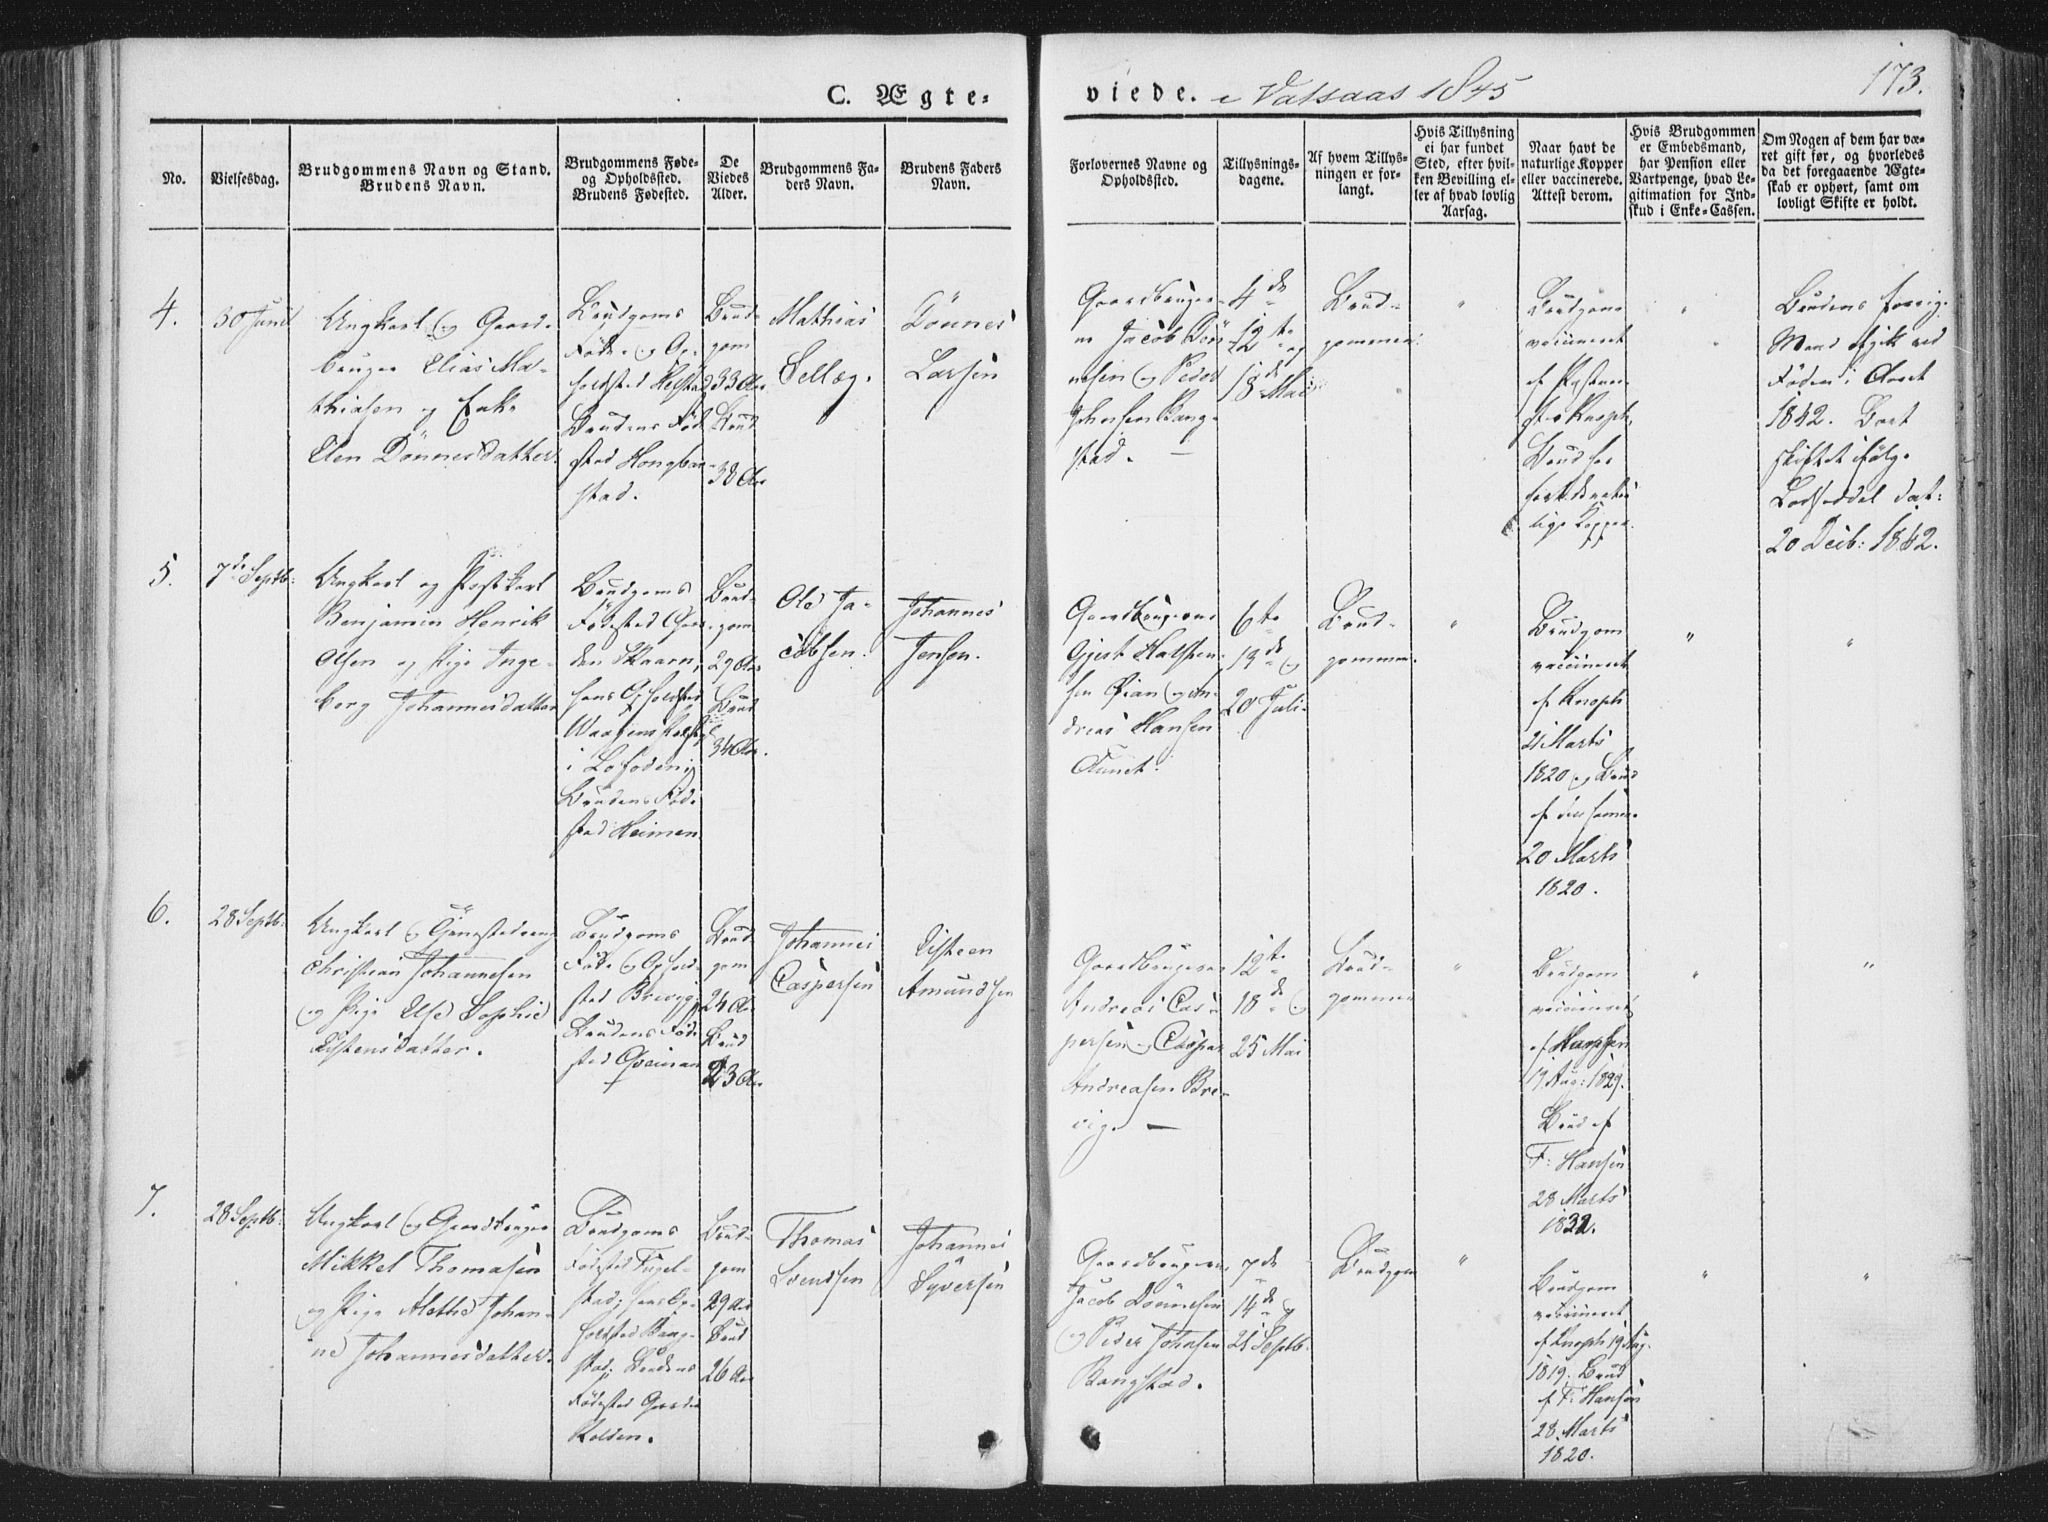 C. Ægte-
viede. i Vatsaas 1845
173.
No.
Vielsesdag.
Brudgommens Navn og Stand.
Brudens Navn.
Brudgommens Føde-
og Opholdsted.
Brudens Fødested.
De
Viedes
Alder.
Brudgommens Fa-
ders Navn.
Brudens Faders
Navn.
Forlovernes Navne og
Opholdsted.
Tillysnings-
dagene.
Af hvem Tillys-
ningen er for-
langt.
Hvis Tillysning
ei har fundet
Sted, efter hvil-
ken Bevilling el-
ler af hvad lovlig
Aarsag.
Naar havt de
naturlige Kopper
eller vaccinerede.
Attest derom.
Hvis Brudgommen
er Embedsmand,
har Pension eller
Vartpenge, hvad Le-
gitimation for Ind-
skud i Enke-Cassen.
Om Nogen af dem har væ-
ret gift før, og hvorledes
da det foregaaende Ægte-
skab er ophørt, samt om
lovligt Skifte er holdt.
4.
30 Junii
Ungkarl og Gaard-
bruger Elias Ma-
thiasen og Enke
Elen Dönnesdatter.
Brudgoms
Føde- og Op-
holdsted
Brudens Føde
sted
stad.
Brud-
gom
33 Aar
Brud
38 Aar
Mathias
Sellæg.
Dönnes
Larsen
Gaardbruger-
ne Jacob Dön
nesen og Peder
Johnsen Bang-
stad. —
4de
12te og
18de Mai
Brud-
gommen.
"
Brudgom
vaccineret
af
Knoph,
Brud har
havt de natur
lige Kopper.
"
Brudens forrige
Mand afgik ved
Døden i Aaret
1842. Bort
skiftet ifølge
Lodseddel dat:
20 Decb: 1842.
5.
7de Septb:
Ungkarl og Postkarl
Benjamin Henrik
Olsen og Pige Inge-
borg Johannesdatter
Brudgoms
Fødested Gaar
den Skaarn,
hans Opholdsted
Waagens
i Lofoden;
Brudens Føde
sted Heimen
Brud-
gom
29 Aar
Brud
34 Aar.
Ole Ja-
cobsen.
Johannes
Jensen.
Gaardbrugerne
Gjert
sen Øian og An-
dreas Hansen
Aunet.
6te
13de og
20 Juli.
Brud-
gommen.
"
Brudgom
vaccineret
af Knoph
21 Marts
1820 og Brud
af den samme
20 Marts
1820.
"
"
6.
28 Septb:
Ungkarl og
Christian Johannesen
og Pige Else Sophie
Brudgoms
Føde og Ophold-
sted Brevig
Brudens Føde
sted
Brud
gom
24 Aar
Brud
23 Aar
Johannes
Caspersen
Amundsen
Gaardbrugerne
Andreas Cas-
persen og Caspar
Andreasen Bre-
vig. —
12te
18de og
25 Mai
Brud-
gommen
"
Brudgom
vaccineret
af
17 Aug: 1829.
Brud af
F: Hansen
28 Marts
1832.
"
"
7.
28 Septb:
Ungkarl og Gaardbruger
Mikkel Thomasen
og Pige Alethe Johan-
ne Johannesdatter.
Brudgoms
Fødested Fugel-
stad; hans Op-
holdsted Bang-
stad; Brudens
Fødested Gaarden
Kolden.
Brud-
gom
29 Aar
Brud
26 Aar
Thomas
Svendsen
Johannes
Syversen
Gaardbrugerne
Jacob Dönnesen
og Peder Johnsen
Bangstad.
7de
14de og
21 Septb:
Brudgom
"
Brudgom
vaccineret
af Knoph 19 Aug.
1819; Brud
af F: Hansen
28 Marts
1820.
"
"